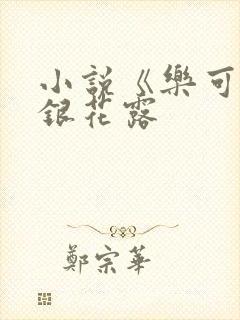 小說《樂可
銀花露
鄭宗華